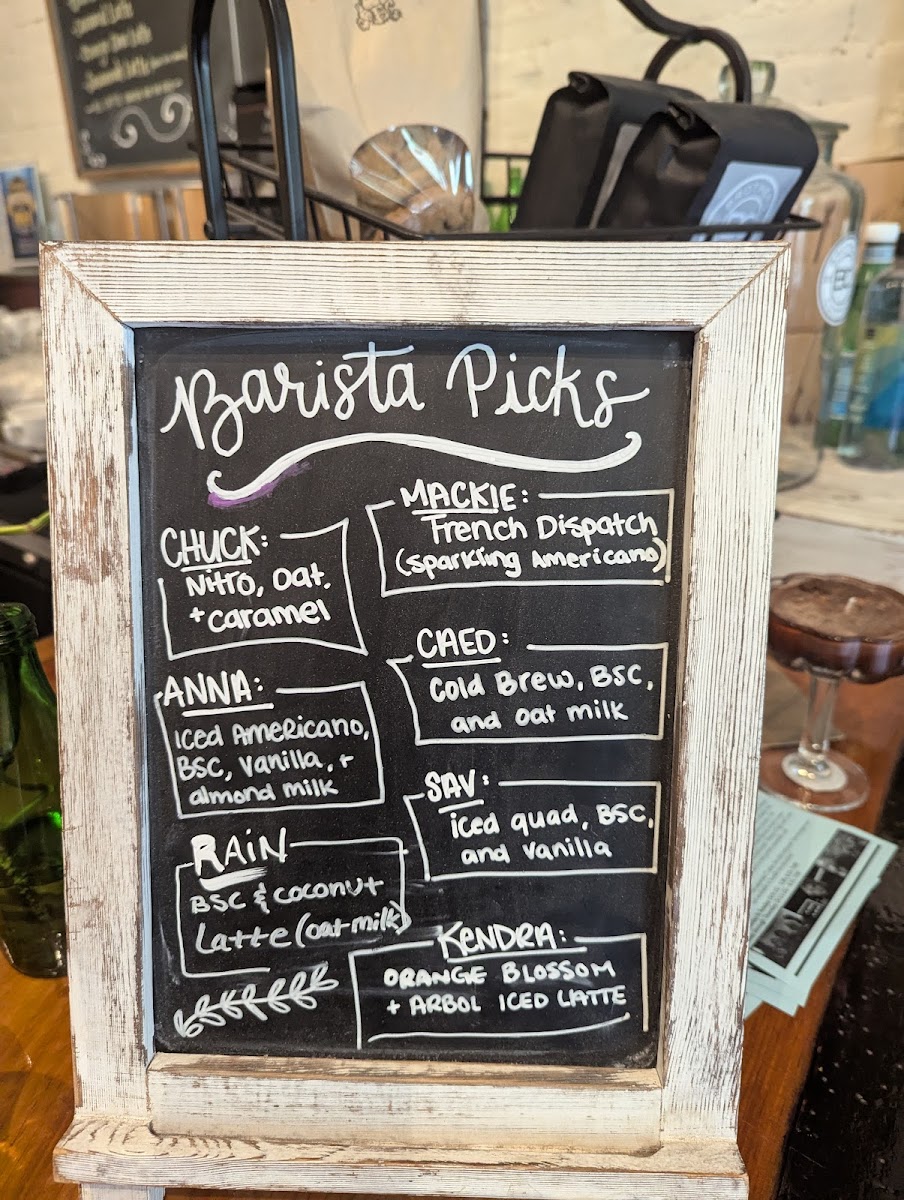 Barista Picks
CHUCK:
Nitro, oat.
+ caramel
MACKIE:
French Dispatch
(sparkling Americano)
ANNA:
iced Americano,
BSC, vanilla, +
almond milk
CAED:
Cold Brew, BSC,
and oat milk
SAV:
iced quad, BSC,
and vanilla
RAIN
BSC & coconut
Latte (oat milk)
KENDRA:
ORANGE BLOSSOM
+ ARBOL ICED LATTE